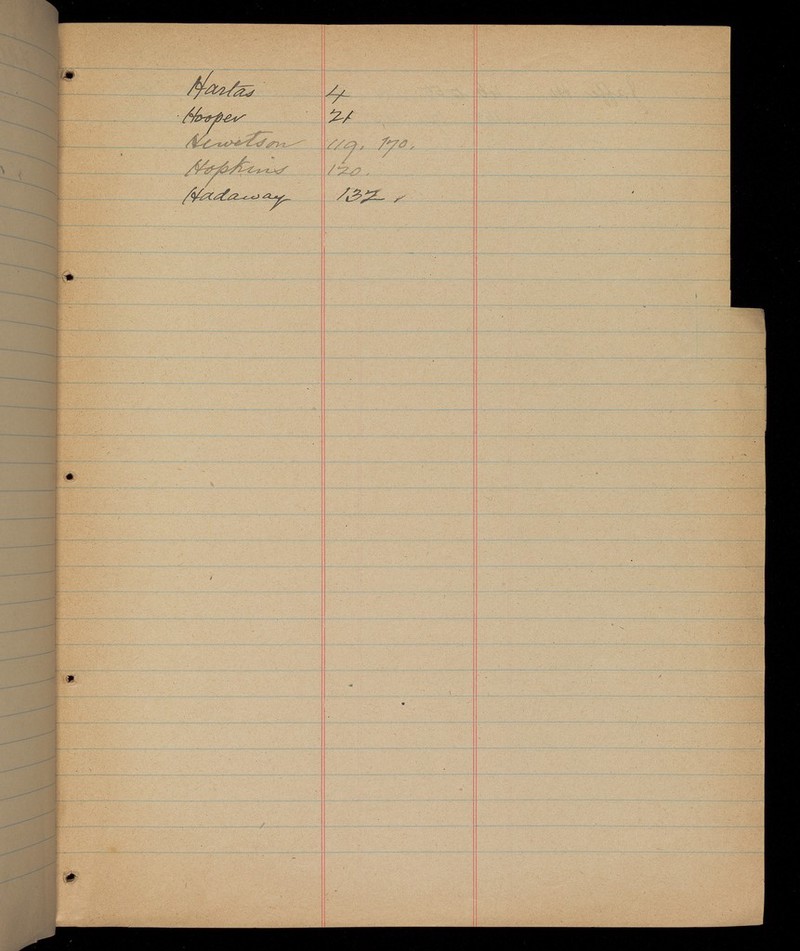 Hartas 4
Hooper 21
Hewetson 119. 170.
Hopkins 120.
Hadaway 132 ✓